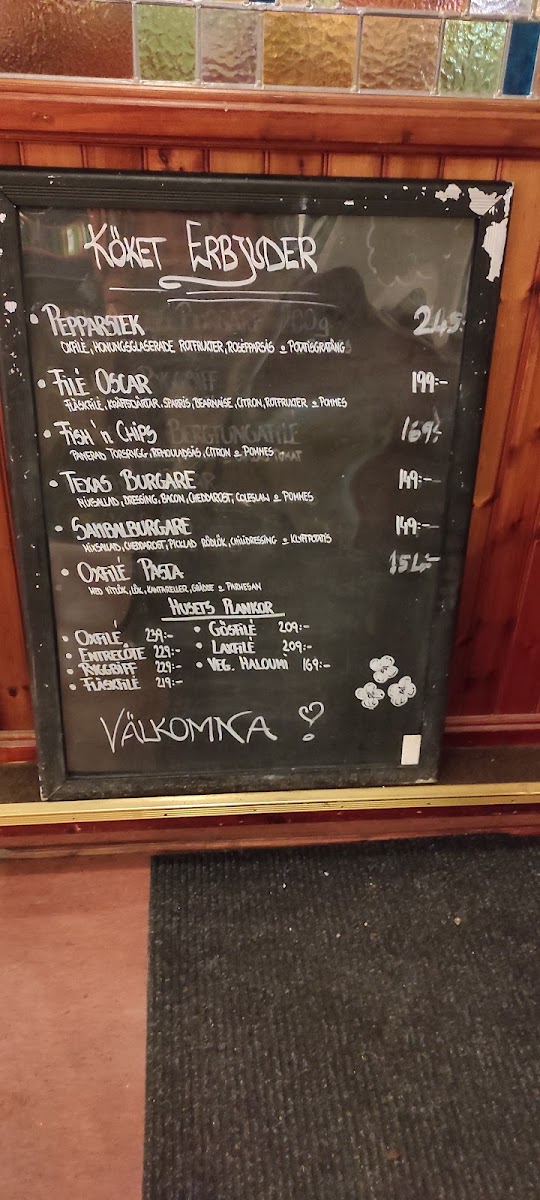 Köket Erbjuder
• Pepparstek 245:-
Oxfilé, Honungsglaserade Rotfrukter, Rosépparsås & Potatisgratäng
• Filé Oscar 199:-
Fläskfilé, Kräftstjärtar, Sparris, Bearnaise, Citron, Rotfrukter & Pommes
• Fish 'n Chips 169:-
Panerad Torskrygg, Remouladsås, Citron & Pommes
• Texas Burgare 149:-
Mixsallad, Dressing, Bacon, Cheddarost, Coleslaw & Pommes
• Sambalburgare 149:-
Mixsallad, Cheddarost, Picklad Rödlök, Chilidressing & Klyftpotatis
• Oxfilé Pasta 154:-
Med Vitlök, Lök, Kantareller, Grädde & Parmesan
Husets Plankor
• Oxfilé 239:- • Gösfilé 209:-
• Entrecôte 229:- • Laxfilé 209:-
• Ryggbiff 229:- • Veg. Haloumi 169:-
• Fläskfilé 219:-
Välkomna !